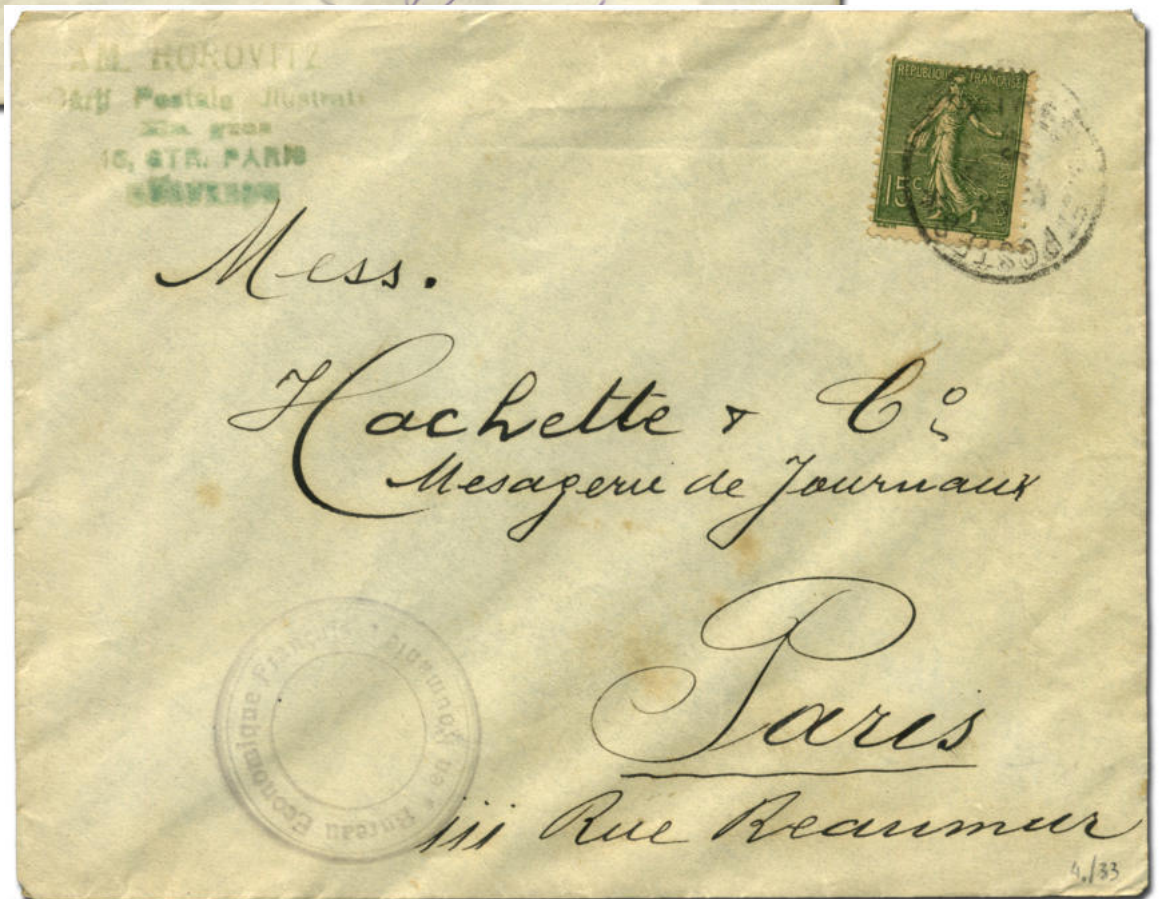 AM. HOROVITZ
Cărți Postale Ilustrate
15, STR. PARIS
REPUBLIQUE FRANÇAISE
15 c
POSTES
POSTE
Mess.
Hachette & Cº
Mesagerie de Journaux
Paris
111 Rue Reaumur
Bureau Economique Français en Roumanie
4./33